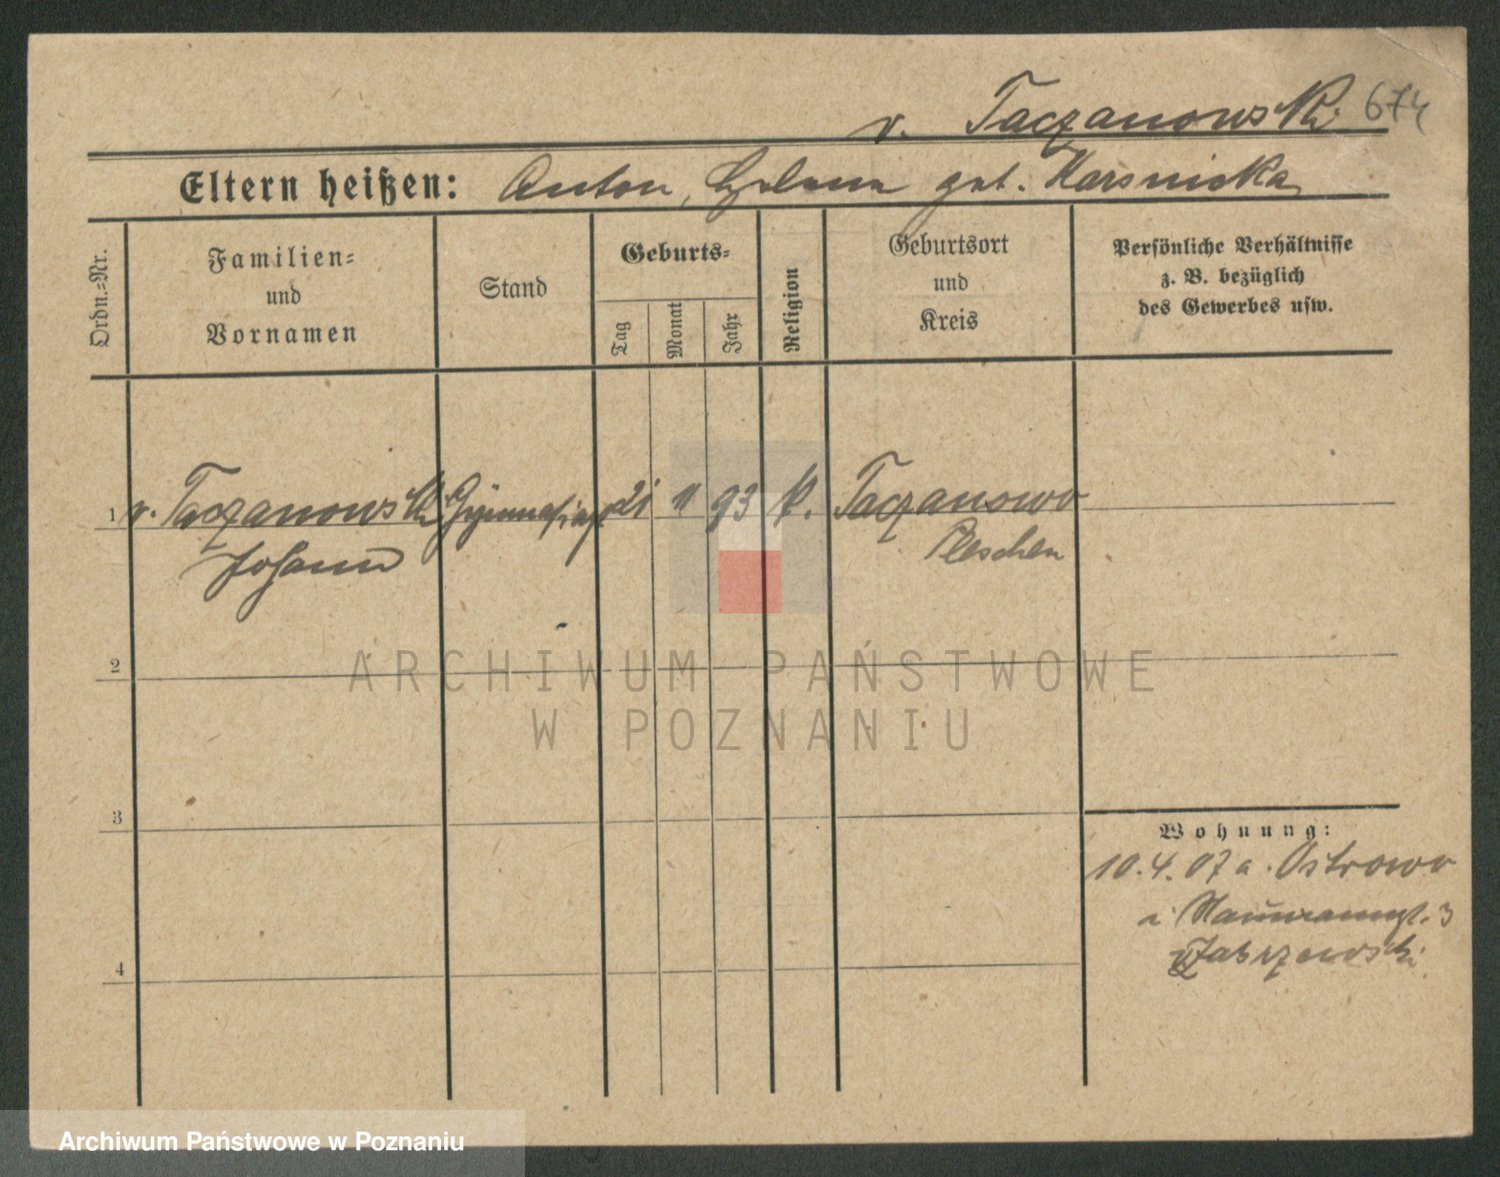 v. Taczanowski 674
Eltern heißen: Anton, Helena geb. Karsnicka
Ordn.-Nr.
Familien-
und
Vornamen
Stand
Geburts-
Tag
Monat
Jahr
Religion
Geburtsort
und
Kreis
Persönliche Verhältnisse
z. B. bezüglich
des Gewerbes usw.
1 v. Taczanowski Gymnasiast 21 11 93 k. Taczanowo
Johann Pleschen
2
ARCHIWUM PAŃSTWOWE
W POZNANIU
3
Wohnung:
10.4.07 a. Ostrowo
3
4
Archiwum Państwowe w Poznaniu